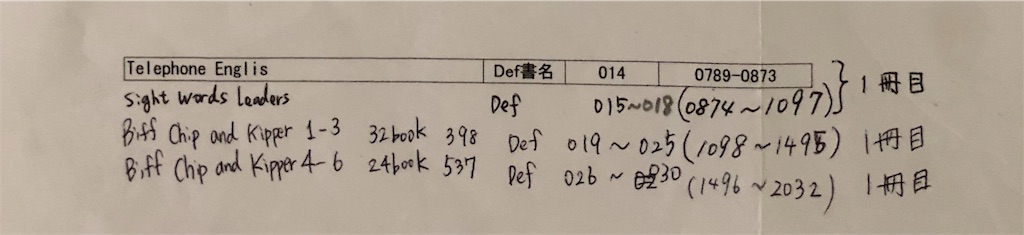 Telephone Englis Def書名 014 0789-0873
Sight words Leaders Def 015~018(0874~1097) 1冊目
Biff Chip and Kipper 1-3 32book 398 Def 019~025(1098~1495) 1冊目
Biff Chip and Kipper 4-6 24book 537 Def 026~030(1496~2032) 1冊目